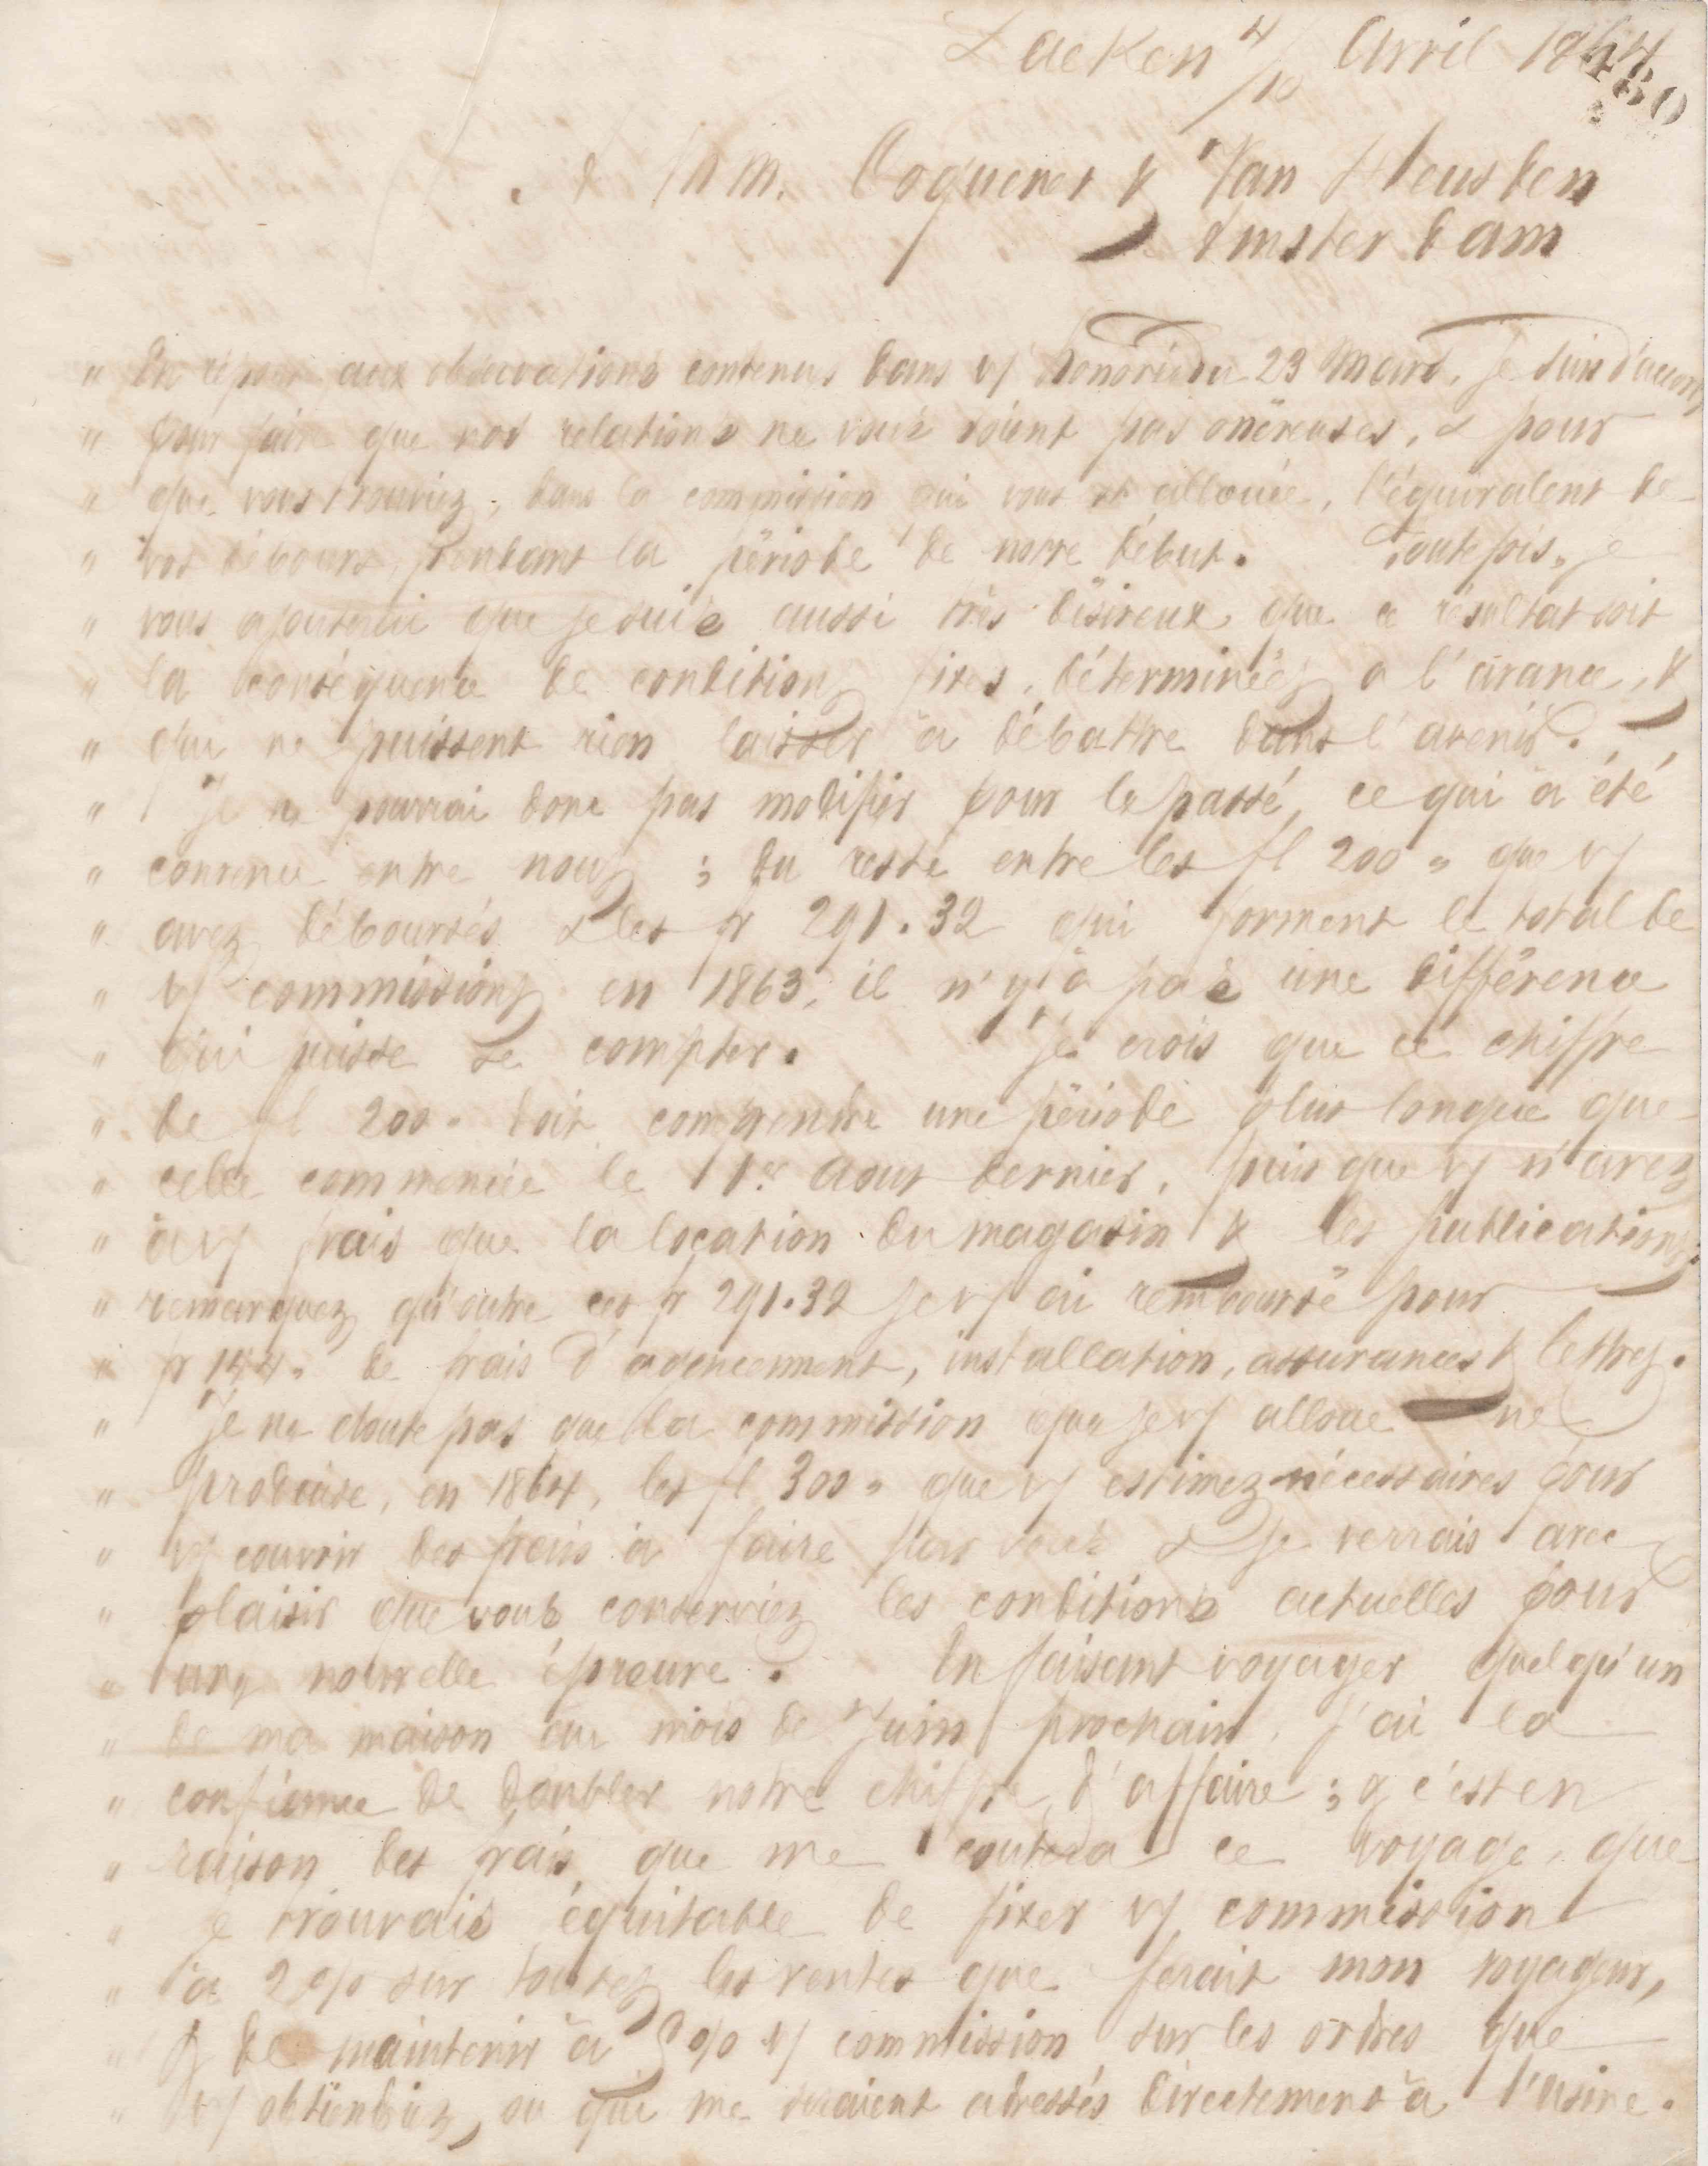 Laeken 4/10 Avril 1864
480
à MM. Coquenet & Van Heusden
Amsterdam
" En réponse aux observations contenues dans v/ honorée du 23 Mars, je suis d'accord
" pour faire que nos relations ne vous soient pas onéreuses, & pour
" que vous trouviez, dans la commission qui vous est allouée, l'équivalent de
" vos débours, pendant la période de notre début. Toutefois, je
" vous ajouterai que je suis aussi très désireux que ce résultat soit
" la conséquence de conditions fixes, déterminées a l'avance, &
" qui ne puissent rien laisser à débattre dans l'avenir.
" Je ne pourrai donc pas modifier pour le passé, ce qui à été
" convenu entre nous ; du reste entre les fl 200 " que v/
" avez déboursés & les fr 291.32 qui forment le total de
" v/ commissions en 1863, il n'y à pas une différence
" qui puisse se compter. Je crois que ce chiffre
" de fl 200 " doit comprendre une période plus longue que
" celle commencée le 1er Aout dernier, puis que v/ n'avez
" à v/ frais que la location du magasin & les publications.
" remarquez qu'outre ces fr 291.32 je v/ ai remboursé pour
" fr 144. de frais d'agencement, installation, assurances & lettres.
" Je ne doute pas que la commission que je v/ alloue ne
" produise, en 1864, les fl 300 " que v/ estimez nécessaires pour
" v/ couvrir des frais à faire par vous & je verrais avec
" plaisir que vous conserviez les conditions actuelles pour
" une nouvelle épreuve. En faisant voyager quelqu'un
" de ma maison au mois de Juin prochain, j'ai la
" confiance de doubler notre chiffre d'affaire ; & c'est en
" raison des frais, que me coutera ce voyage, que
" je trouvais équitable de fixer v/ commission
" à 2 % sur toutes les ventes que ferait mon voyageur,
" & de maintenir à 3 % v/ commission sur les ordres que
" v/ obtiendriez, ou qui me seraient adressés directement à l'usine.